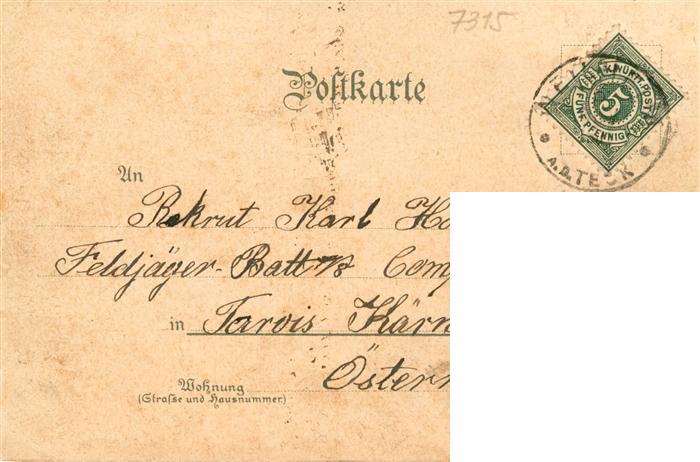 7315
Postkarte
K. WÜRTT. POST
5
FÜNF PFENNIG
A.D. TECK
An
Rekrut Karl Ho
Feldjäger-Batt
Comp
in Tarvis Kärn
Österr
Wohnung
(Straße und Hausnummer)